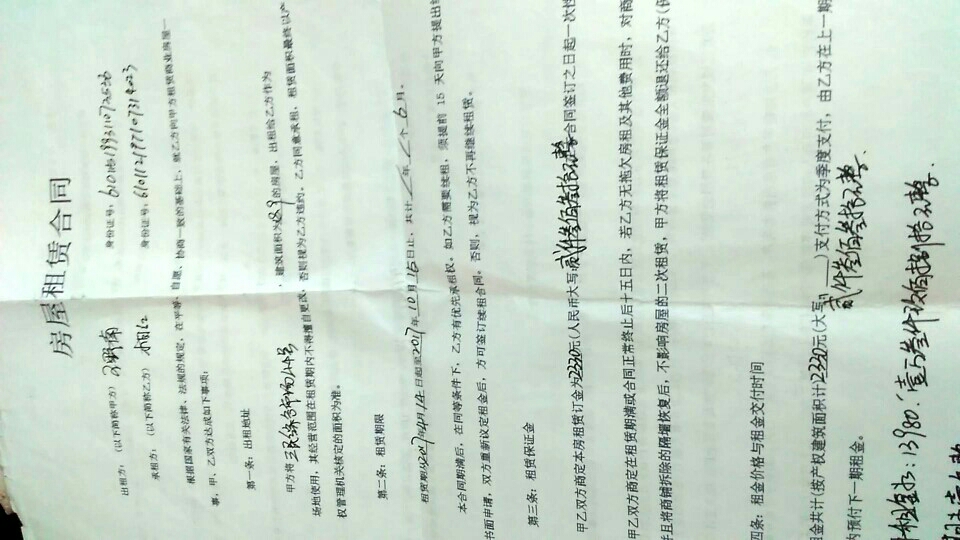 房屋租赁合同
出租方：（以下简称甲方） 身份证号：
承租方：（以下简称乙方） 身份证号：
根据国家有关法律、法规的规定，在平等、自愿、协商一致的基础上，就乙方向甲方租赁商业房屋一
事，甲、乙双方达成如下事项：
第一条：出租地址
甲方将 ，建筑面积为 的房屋，出租给乙方作为
场地使用，其经营范围在租赁期内不得擅自更改，否则视为乙方违约。乙方同意承租，租赁面积最终以产
权管理机关核定的面积为准。
第二条：租赁期限
租赁期从2017年4月14日起至2017年10月15日止，共计/年/个6月。
本合同期满后，在同等条件下，乙方有优先承租权。如乙方需要续租，须提前 15 天向甲方提出续
书面申请，双方重新议定租金后，方可签订续租合同。否则，视为乙方不再继续租赁。
第三条：租赁保证金
甲乙双方商定本房租赁订金为2330元(人民币大写 合同签订之日起一次性
甲乙双方商定在租赁期满或合同正常终止后十五日内，若乙方无拖欠房租及其他费用时，对商
并且将商铺拆除的隔墙恢复后，不影响房屋的二次租赁，甲方将租赁保证金全额退还给乙方
四条：租金价格与租金交付时间
金共计(按产权建筑面积计2330元(大写 )支付方式为季度支付，由乙方在上一期
贰仟叁佰叁拾元整
内预付下一期租金。
13980